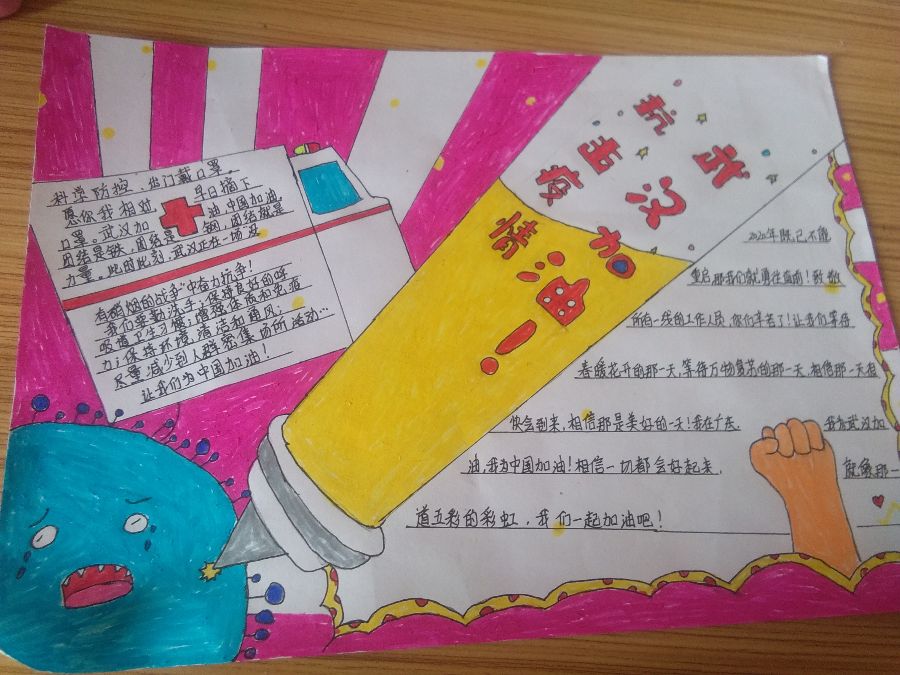 抗击疫情
武汉加油！
科学防控、出门戴口罩，
愿你我相对 早日摘下
口罩。武汉加 油，中国加油，
团结是铁，团结是 钢，团结就是
力量。此时此刻，武汉正在一场没
有硝烟的战争"中奋力抗争！
我们要勤洗手；保持良好的呼
吸道卫生习惯；增强体质和免疫
力；保持环境清洁和通风；
尽量减少到人群密集场所活动…
让我们为中国加油！
2020年既已不能
重启，那我们就勇往直前！致敬
所有一线的工作人员，你们辛苦了！让我们等待
春暖花开的那一天，等待万物复苏的那一天，相信那一天很
快会到来，相信那是美好的一天！我在广东 我为武汉加
油，我为中国加油！相信一切都会好起来， 就像那一
道五彩的彩虹，我们一起加油吧！